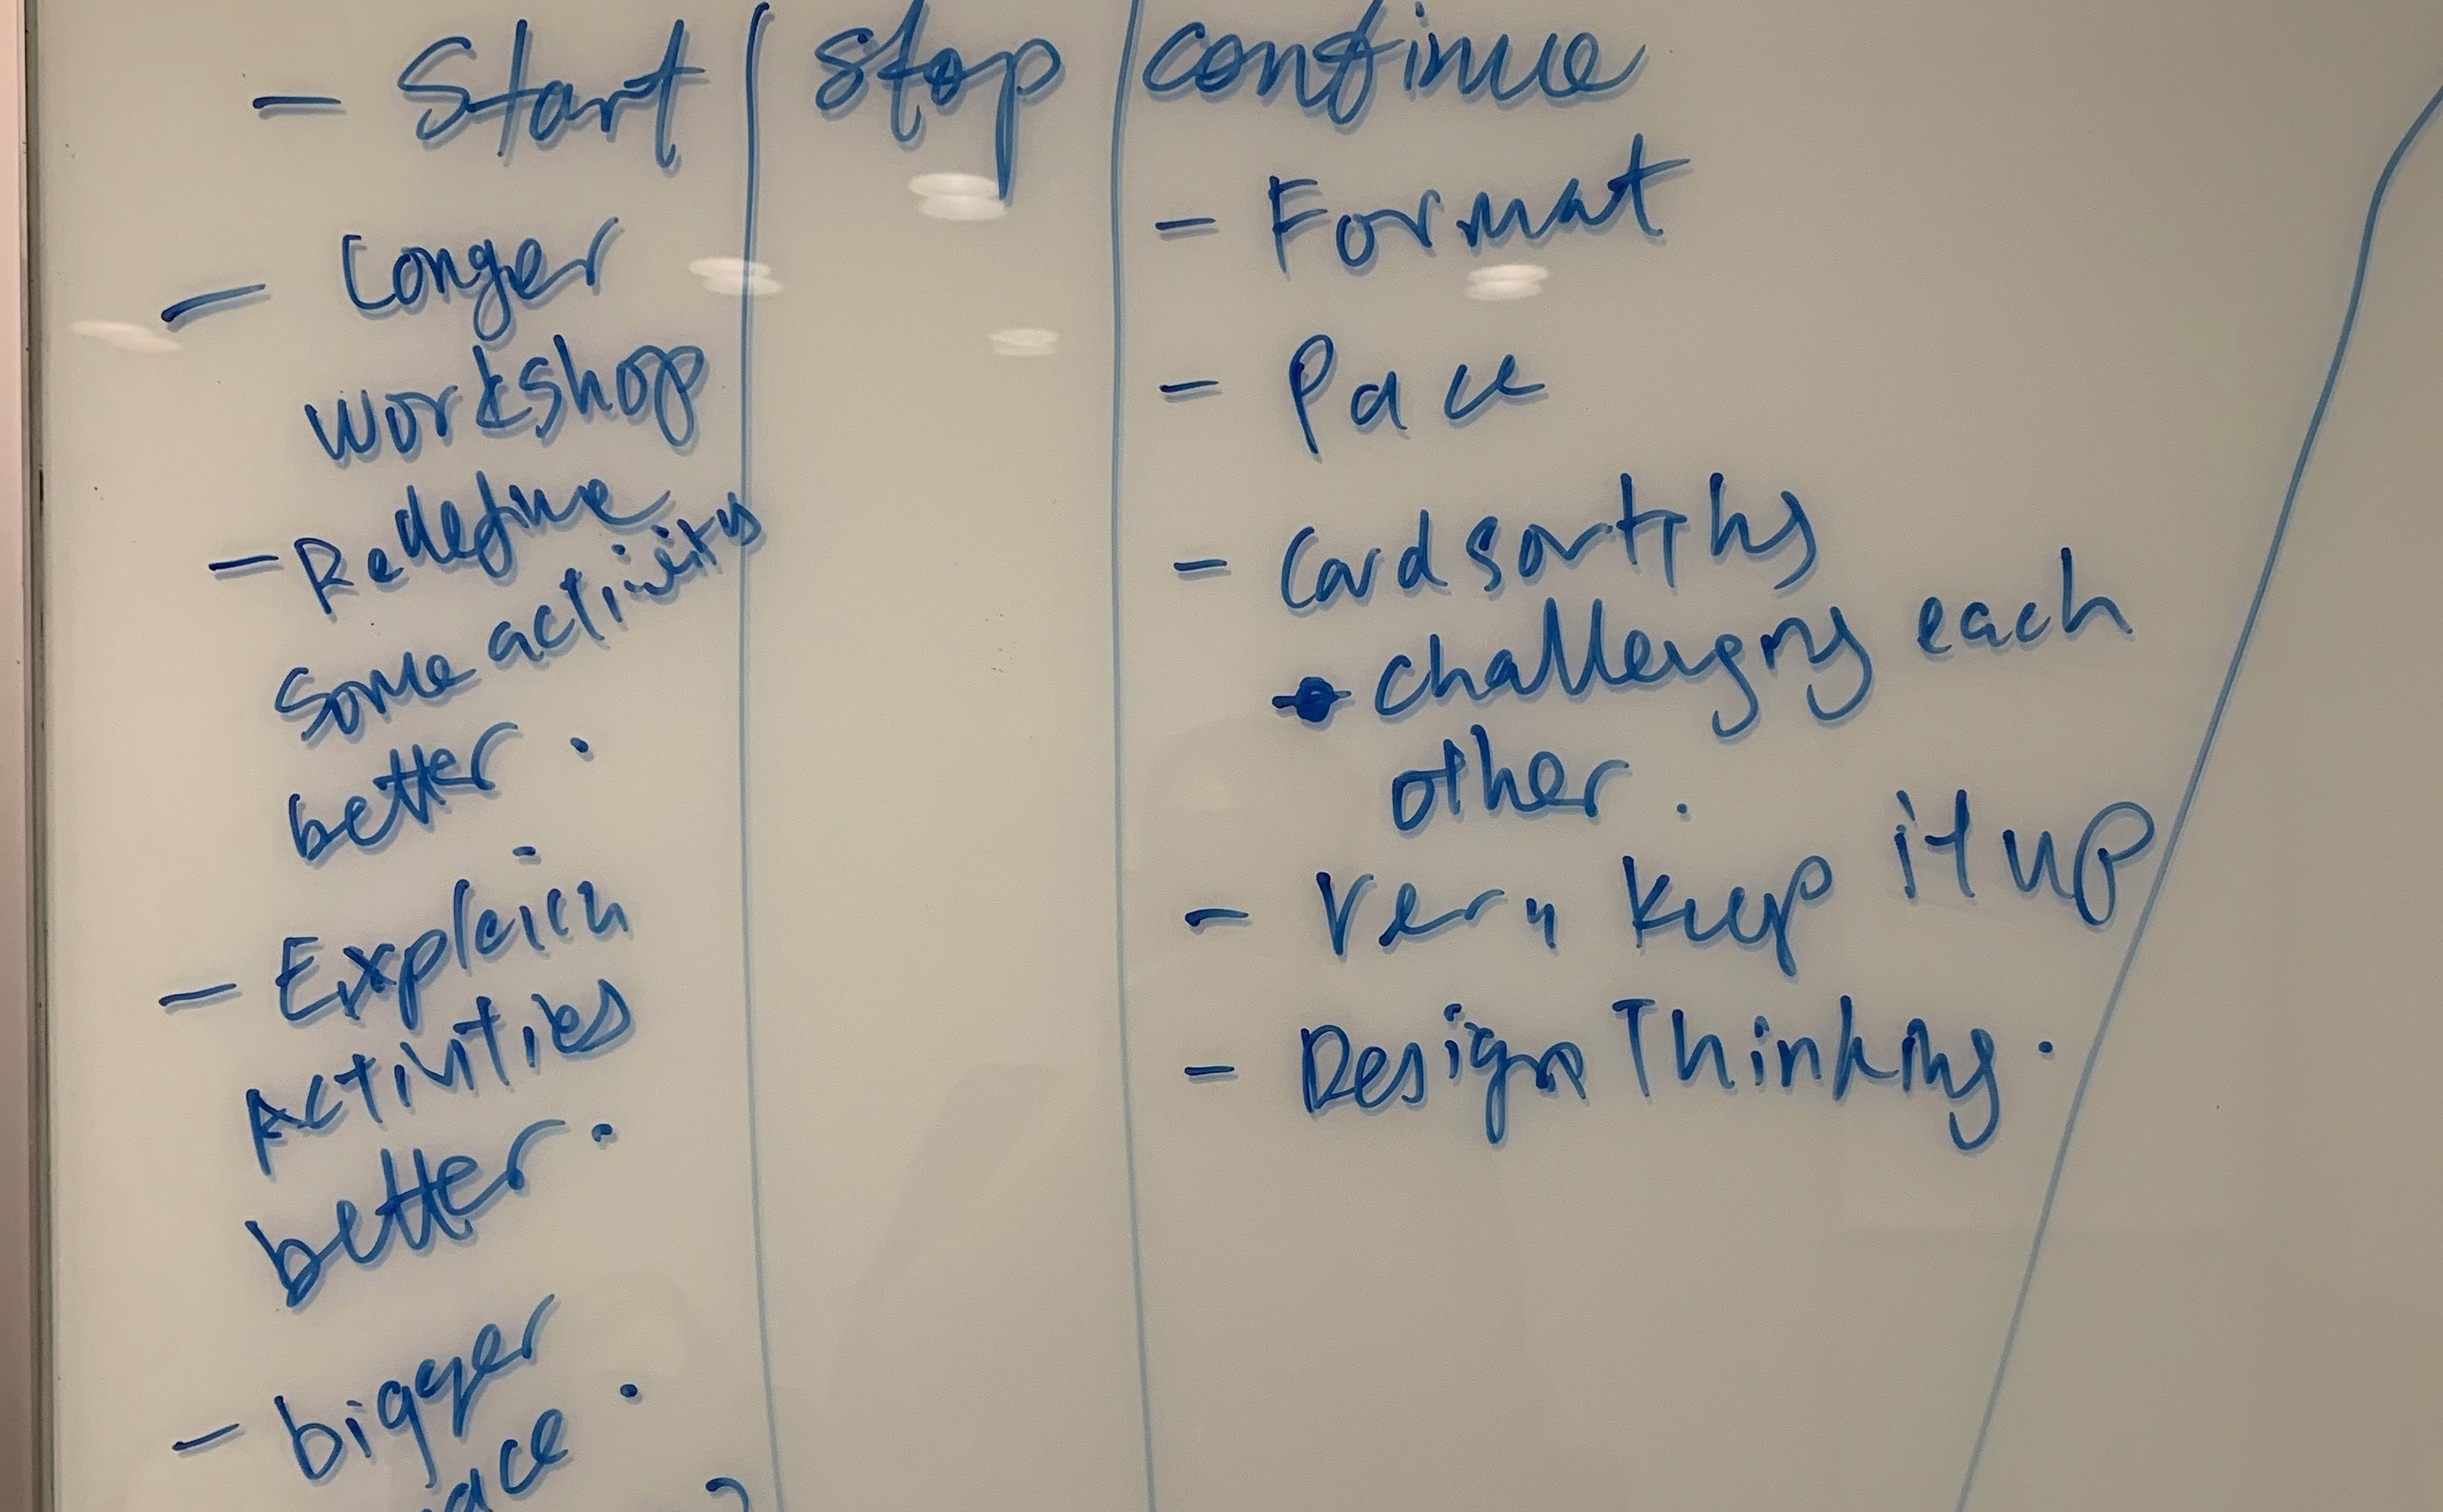 - Start | stop | continue
- Longer
workshop
- Redefine
Some activities
better.
- Explain
Activities
better.
- bigger
- Format
- Pace
- Card sorting
challenging each
other.
- Very keep it up
- Design Thinking.